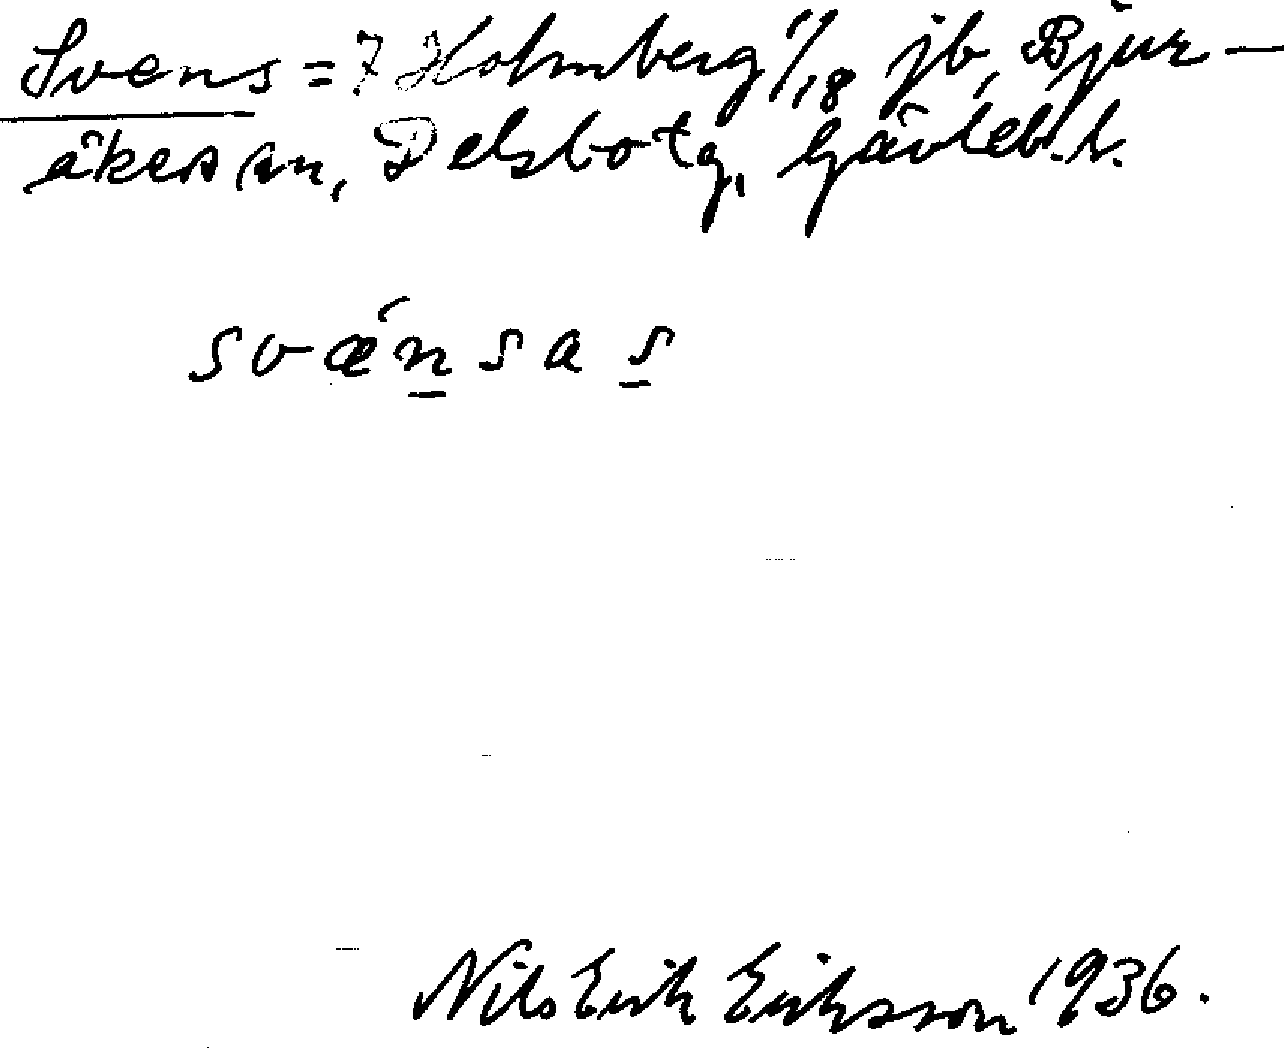 Svens = 7 Holmberg 1/18 jb, Bjur-
åkers sn, Delsbo tg, Gävleb. l.
svǽnsas
Nils Erik Eriksson 1936.